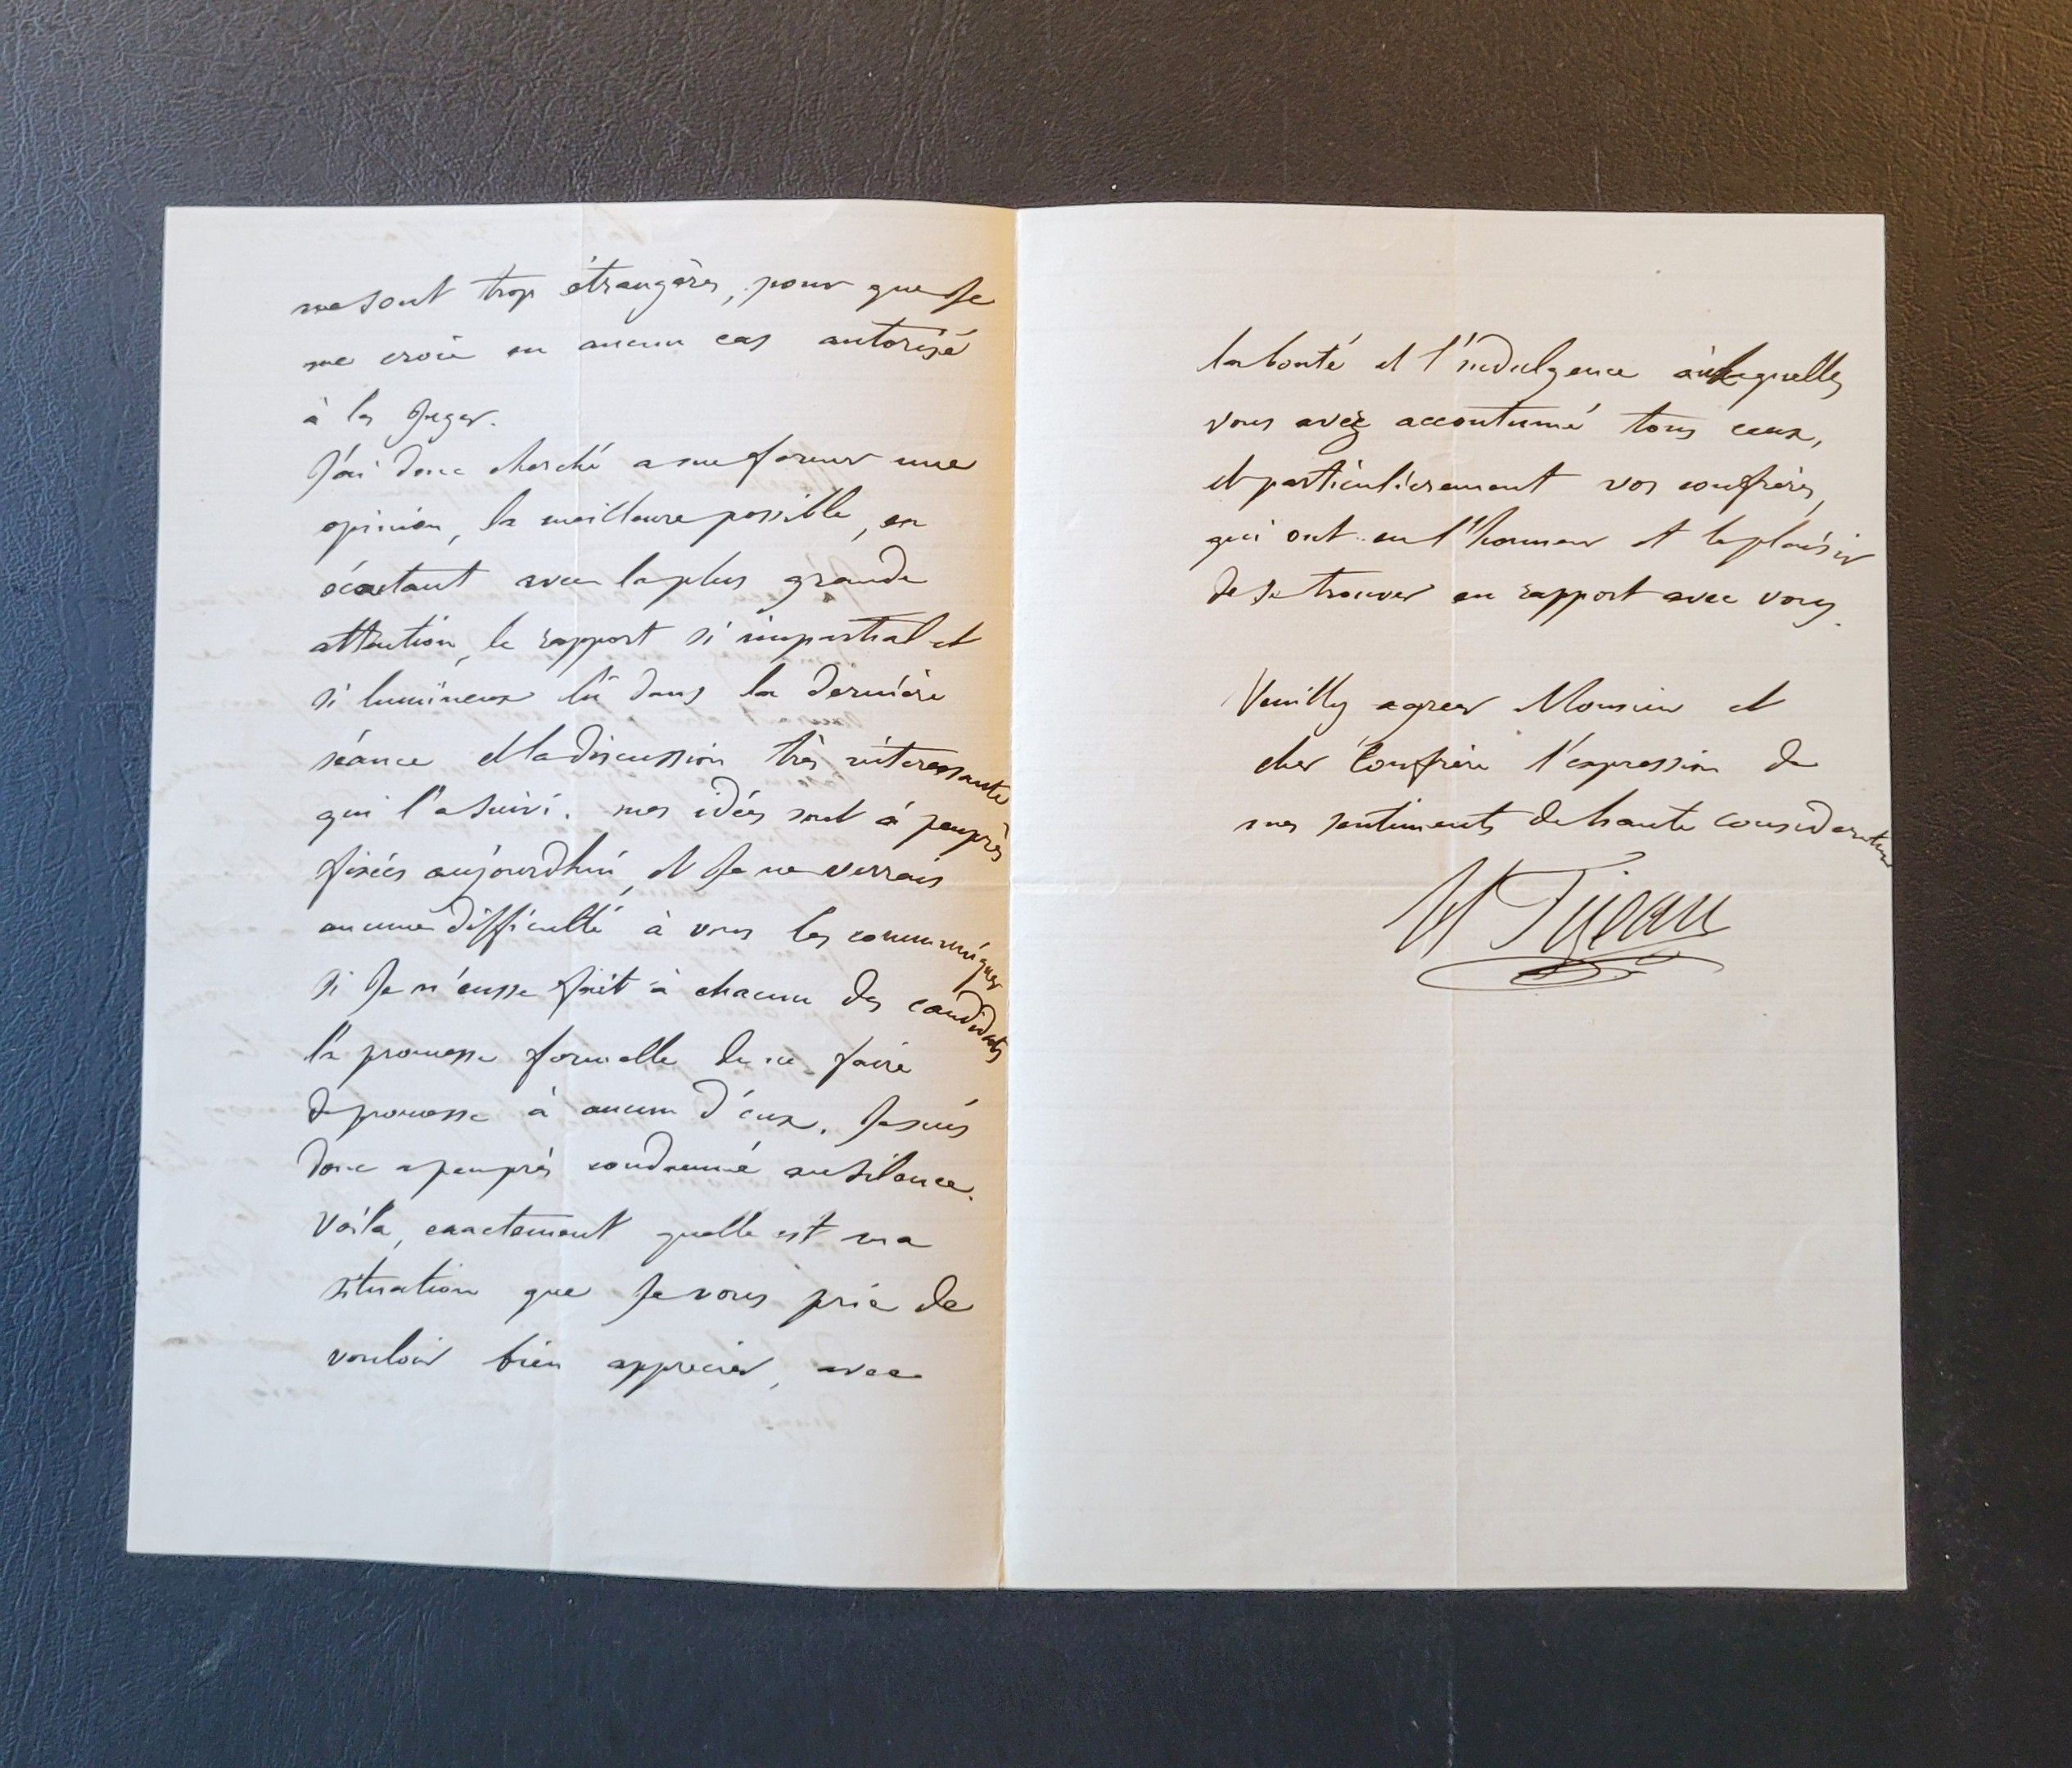 me sont trop étrangères, pour que Je
me croie en aucun cas autorisé
à les Juger.
J'ai donc cherché a me former une
opinion, la meilleure possible, en
écoutant avec la plus grande
attention, le rapport si impartial et
si lumineux lû dans la dernière
séance et la discussion très intéressante
qui l'a suivi. mes idées sont à peuprès
fixées aujourdhui, et Je ne verrais
aucune difficulté à vous les communiquer
si Je n'eusse fait à chacun des candidats
la promesse formelle de ne faire
de promesse à aucun d'eux. Je suis
donc a peuprès condamné au silence.
Voila, exactement quelle est ma
situation que Je vous prie de
vouloir bien apprecier, avec
la bonté et l'indulgence auxquelles
vous avez accoutumé tous ceux,
et particulièrement vos confrères,
qui ont eu l'honneur et le plaisir
de se trouver en rapport avec vous.
Veuillez agreer Monsieur et
cher Confrère l'expression de
mes sentiments de haute consideration